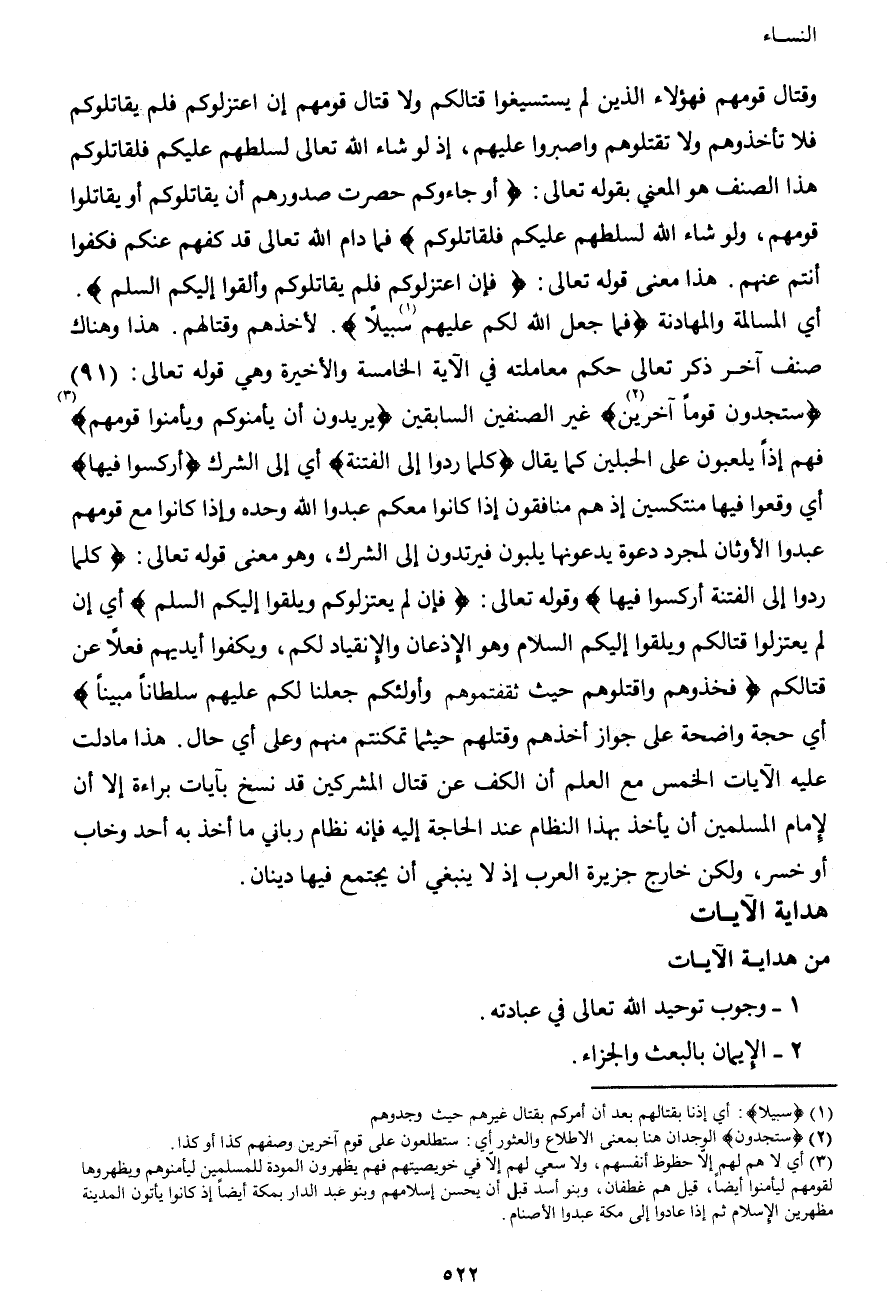 النساء
وقتال قومهم فهؤلاء الذين لم يستسيغوا قتالكم ولا قتال قومهم إن اعتزلوكم فلم يقاتلوكم
فلا تأخذوهم ولا تقتلوهم واصبروا عليهم، إذ لو شاء الله تعالى لسلطهم عليكم فلقاتلوكم
هذا الصنف هو المعني بقوله تعالى: ﴿ أو جاءوكم حصرت صدورهم أن يقاتلوكم أو يقاتلوا
قومهم، ولو شاء الله لسلطهم عليكم فلقاتلوكم ﴾ فما دام الله تعالى قد كفهم عنكم فكفوا
أنتم عنهم. هذا معنى قوله تعالى: ﴿ فإن اعتزلوكم فلم يقاتلوكم وألقوا إليكم السلم ﴾.
أي المسالمة والمهادنة ﴿فما جعل الله لكم عليهم سبيلاً(١)﴾. لأخذهم وقتالهم. هذا وهناك
صنف آخر ذكر تعالى حكم معاملته في الآية الخامسة والأخيرة وهي قوله تعالى: (٩١)
﴿ستجدون قوماً آخرين(٢)﴾ غير الصنفين السابقين ﴿يريدون أن يأمنوكم ويأمنوا قومهم﴾(٣)
فهم إذاً يلعبون على الحبلين كما يقال ﴿كلما ردوا إلى الفتنة﴾ أي إلى الشرك ﴿أركسوا فيها﴾
أي وقعوا فيها منتكسين إذ هم منافقون إذا كانوا معكم عبدوا الله وحده وإذا كانوا مع قومهم
عبدوا الأوثان لمجرد دعوة يدعونها يلبون فيرتدون إلى الشرك، وهو معنى قوله تعالى: ﴿ كلما
ردوا إلى الفتنة أركسوا فيها ﴾ وقوله تعالى: ﴿ فإن لم يعتزلوكم ويلقوا إليكم السلم ﴾ أي إن
لم يعتزلوا قتالكم ويلقوا إليكم السلام وهو الإذعان والإنقياد لكم، ويكفوا أيديهم فعلاً عن
قتالكم ﴿ فخذوهم واقتلوهم حيث ثقفتموهم وأولئكم جعلنا لكم عليهم سلطاناً مبيناً ﴾
أي حجة واضحة على جواز أخذهم وقتلهم حيثما تمكنتم منهم وعلى أي حال. هذا مادلت
عليه الآيات الخمس مع العلم أن الكف عن قتال المشركين قد نسخ بآيات براءة إلا أن
لإمام المسلمين أن يأخذ بهذا النظام عند الحاجة إليه فإنه نظام رباني ما أخذ به أحد وخاب
أو خسر، ولكن خارج جزيرة العرب إذ لا ينبغي أن يجتمع فيها دينان.
هداية الآيات
من هداية الآيات
١ - وجوب توحيد الله تعالى في عبادته.
٢ - الإيمان بالبعث والجزاء.
(١) ﴿سبيلا﴾: أي إذنا بقتالهم بعد أن أمركم بقتال غيرهم حيث وجدوهم
(٢) ﴿ستجدون﴾ الوجدان هنا بمعنى الاطلاع والعثور أي: ستطلعون على قوم آخرين وصفهم كذا أو كذا.
(٣) أي لا هم لهم إلاّ حظوظ أنفسهم، ولا سعي لهم إلاّ في خويصيتهم فهم يظهرون المودة للمسلمين ليأمنوهم ويظهروها
لقومهم ليأمنوا أيضاً، قيل هم غطفان، وبنو أسد قبل أن يحسن إسلامهم وبنو عبد الدار بمكة أيضاً إذ كانوا يأتون المدينة
مظهرين الإسلام ثم إذا عادوا إلى مكة عبدوا الأصنام.
٥٢٢